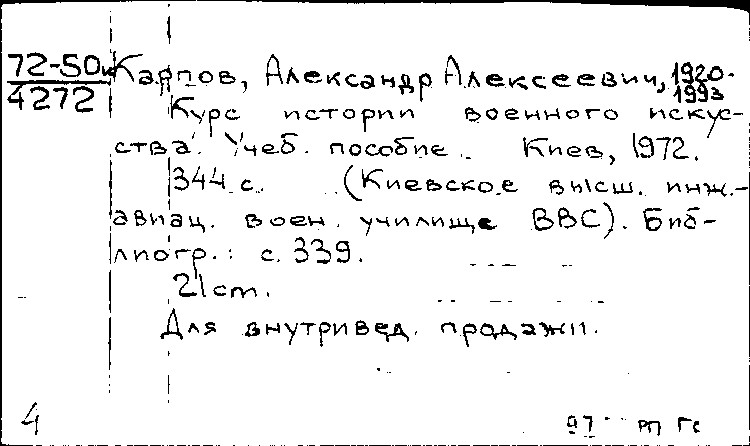 72-50и Карпов, Александр Алексеевич, 1920-
4272 1993
Курс истории военного искус-
ства. Учеб. пособие. Киев, 1972.
344 с. (Киевское высш. инж.-
авиац. воен. училище ВВС). Биб-
лиогр.: с. 339.
21 cm.
Для внутривед. продажи.
4 97 РП Гс